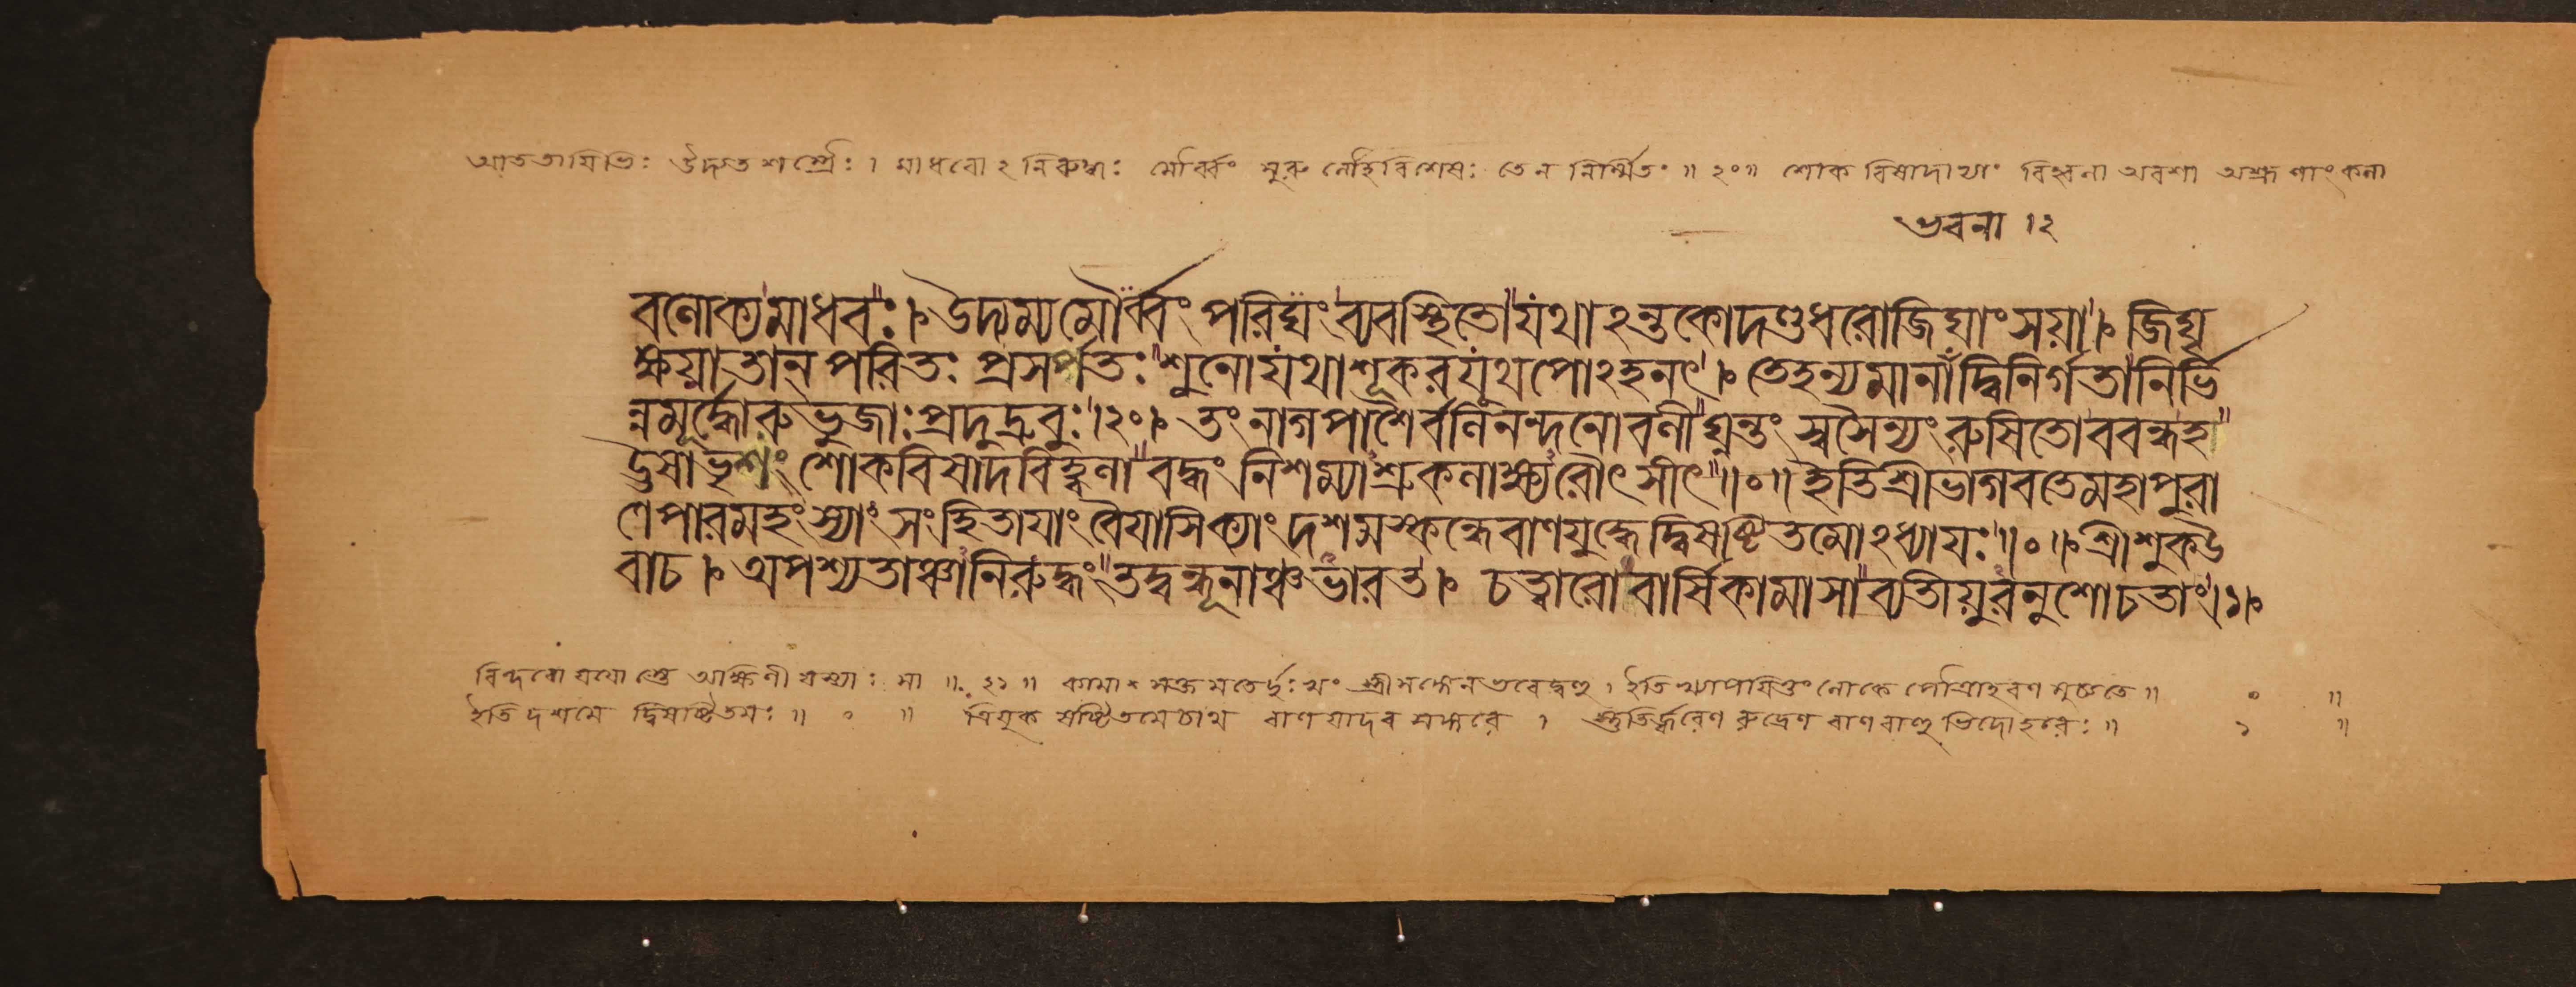 আততায়িভিঃ উদ্গত শস্ত্রৈঃ । মাধবোঽনিরুদ্ধঃ মৌর্ব্বং মুরু লৌহবিশেষঃ তেন নির্ম্মিতং ॥ ২০॥ শোক বিষাদাভ্যাং বিহ্বলা অবশা অশ্রু কলা
বলোক্যমাধবঃ। উদ্যম্যমৌর্ব্বং পরিঘং ব্যবস্থিতো যথাঽন্তকোদণ্ডধরোজিঘাংসয়া। জিঘৃ
ক্ষয়াতান্ পরিতঃ প্রসর্পতঃ শুনো যথাশূকরযূথপোঽহনৎ। তেহন্যমানা দ্বিনির্গতানির্ভি
ন্নমূর্দ্ধোরুভুজাঃ প্রদুদ্রুবুঃ।২০। তং নাগপাশৈর্বলিনন্দনোবলীঘ্নন্তং স্বসৈন্যং রুষিতোববন্ধহ
ঊষাভৃশং শোকবিষাদবিহ্বলা বদ্ধং নিশম্যাশ্রুকলাক্ষ্যরৌৎসীৎ॥০॥ ইতিশ্রীভাগবতেমহাপুরা
ণেপারমহংস্যাং সংহিতায়াং বৈয়াসিক্যাং দশমস্কন্ধেবাণযুদ্ধেদ্বিষষ্টিতমোঽধ্যায়ঃ॥০॥ শ্রীশুকউ
বাচ। অপশ্যতাঞ্চানিরুদ্ধং তদ্বন্ধূনাঞ্চভারত। চত্বারোবার্ষিকামাসাব্যতীয়ুরনুশোচতাং।১।
বিন্দবো যয়োস্তে অক্ষিণী যস্যাঃ সা ॥ ২১ ॥ কামা সক্তমতের্দুঃখং ইতি খ্যাপয়িতুং লোকে পৌত্রাহরণ মুচ্যতে॥ ০ ॥
ইতি দশমে দ্বিষষ্টিতমঃ॥ ০ ॥ ত্রিযুক ষষ্টিতমেচাথ বাণ যাদব সঙ্গরে । স্তুতির্জ্বরেণ রুদ্রেণ বাণবাহু ভিদোহরেঃ॥ ১ ॥